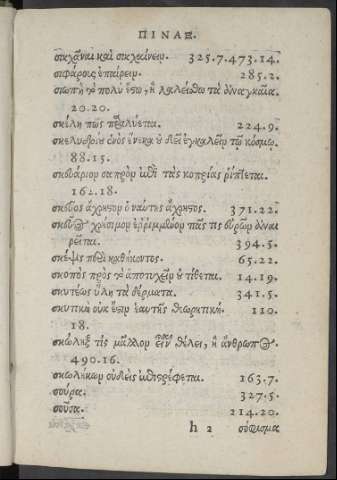 ΠΙΝΑΞ.
σικχᾶναι καὶ σικχαίνειν. 325.7.473.14.
σιφάροις ἐπαίρειν. 285.2.
σιωπὴ τὸ πολὺ ἔστω, ἢ λαλείσθω τὰ ἀναγκαῖα.
20.20.
σκέλη πῶς 224.9.
ἑνὸς ἕνεκα οὐ δεῖ ἐγκαλεῖν τῷ κόσμῳ.
88.15.
σκυβάριον σαπρὸν ἐπὶ τὰς κοπρίας ῥίπτεται.
162.18.
σκεῦος ἄχρηστον ὁ ναύτης ἄχρηστος. 371.22.
σκεῦος χρήσιμον ἐρριμμένον πᾶς τις εὑρὼν ἀναι
ρεῖται. 394.5.
σκέψις περὶ καθήκοντος. 65.22.
σκοπὸς πρὸς τὸ ἀποτυχεῖν οὐ τίθεται. 14.19.
σκυτέως ὕλη τὰ δέρματα. 341.5.
σκυτικὴ οὐκ ἔστιν ἑαυτῆς θεωρητική. 110.
18.
σκώληξ τίς μᾶλλον εἶναι θέλει, ἢ ἄνθρωπος.
490.16.
σκωλήκων οὐδεὶς ἐπιστρέφεται. 163.7.
σούρα. 327.5.
σοῦσα. 214.20.
h 2 σόφισμα